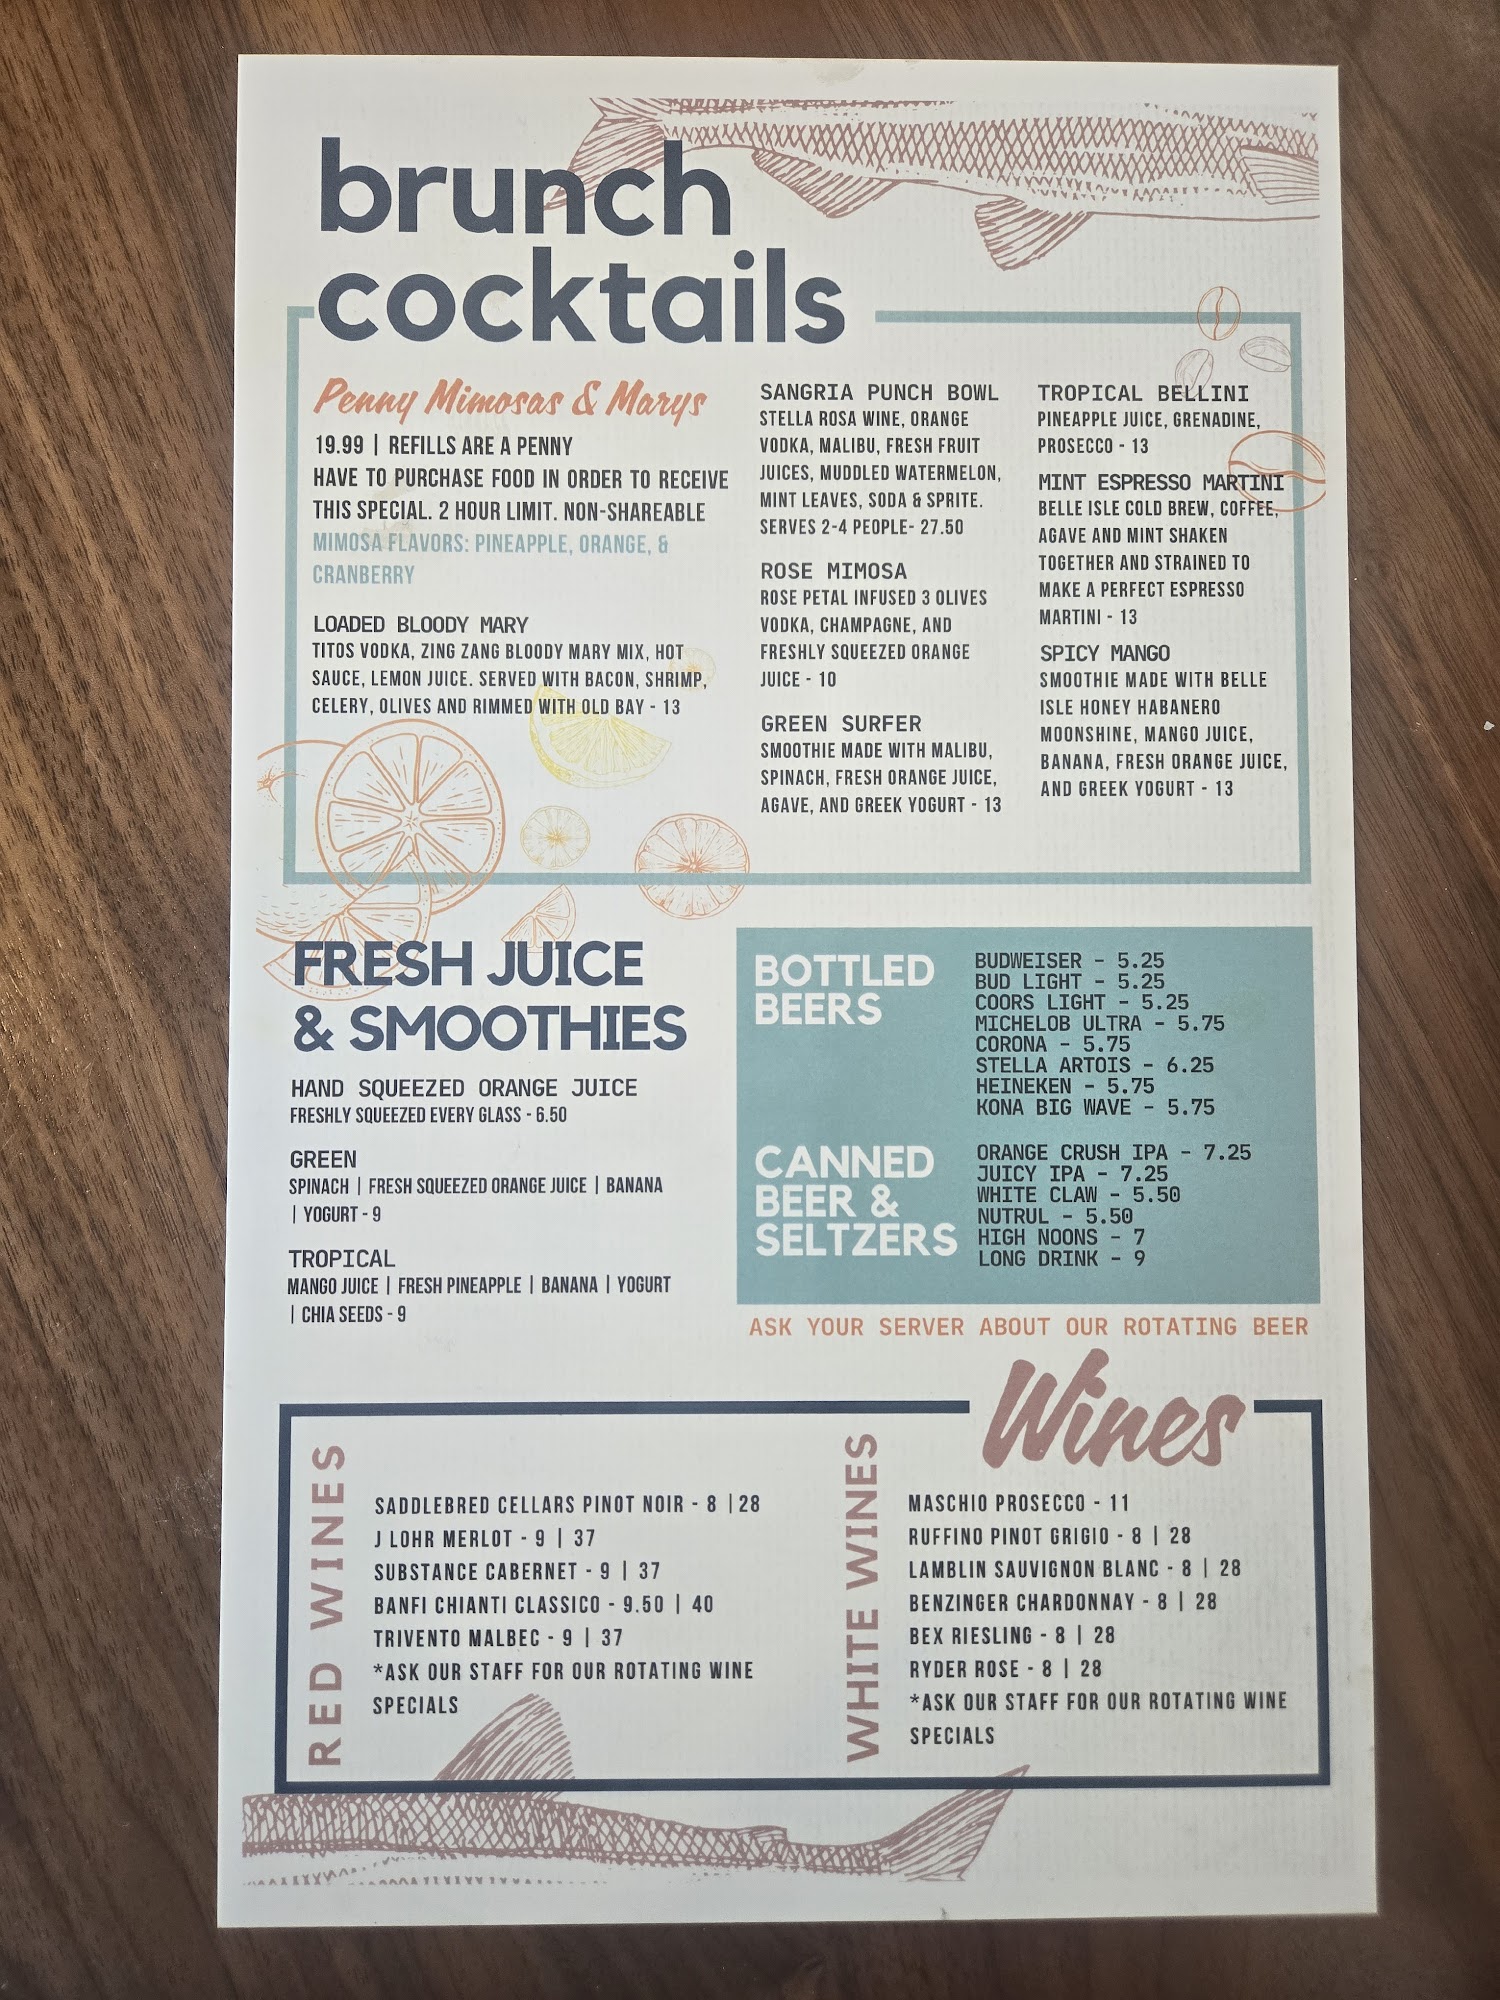 brunch
cocktails
Penny Mimosas & Marys
19.99 | REFILLS ARE A PENNY
HAVE TO PURCHASE FOOD IN ORDER TO RECEIVE
THIS SPECIAL. 2 HOUR LIMIT. NON-SHAREABLE
MIMOSA FLAVORS: PINEAPPLE, ORANGE, &
CRANBERRY
LOADED BLOODY MARY
TITOS VODKA, ZING ZANG BLOODY MARY MIX, HOT
SAUCE, LEMON JUICE. SERVED WITH BACON, SHRIMP,
CELERY, OLIVES AND RIMMED WITH OLD BAY - 13
SANGRIA PUNCH BOWL
STELLA ROSA WINE, ORANGE
VODKA, MALIBU, FRESH FRUIT
JUICES, MUDDLED WATERMELON,
MINT LEAVES, SODA & SPRITE.
SERVES 2-4 PEOPLE- 27.50
ROSE MIMOSA
ROSE PETAL INFUSED 3 OLIVES
VODKA, CHAMPAGNE, AND
FRESHLY SQUEEZED ORANGE
JUICE - 10
GREEN SURFER
SMOOTHIE MADE WITH MALIBU,
SPINACH, FRESH ORANGE JUICE,
AGAVE, AND GREEK YOGURT - 13
TROPICAL BELLINI
PINEAPPLE JUICE, GRENADINE,
PROSECCO - 13
MINT ESPRESSO MARTINI
BELLE ISLE COLD BREW, COFFEE,
AGAVE AND MINT SHAKEN
TOGETHER AND STRAINED TO
MAKE A PERFECT ESPRESSO
MARTINI - 13
SPICY MANGO
SMOOTHIE MADE WITH BELLE
ISLE HONEY HABANERO
MOONSHINE, MANGO JUICE,
BANANA, FRESH ORANGE JUICE,
AND GREEK YOGURT - 13
FRESH JUICE
& SMOOTHIES
HAND SQUEEZED ORANGE JUICE
FRESHLY SQUEEZED EVERY GLASS - 6.50
GREEN
SPINACH | FRESH SQUEEZED ORANGE JUICE | BANANA
| YOGURT - 9
TROPICAL
MANGO JUICE | FRESH PINEAPPLE | BANANA | YOGURT
| CHIA SEEDS - 9
BOTTLED
BEERS
BUDWEISER - 5.25
BUD LIGHT - 5.25
COORS LIGHT - 5.25
MICHELOB ULTRA - 5.75
CORONA - 5.75
STELLA ARTOIS - 6.25
HEINEKEN - 5.75
KONA BIG WAVE - 5.75
CANNED
BEER &
SELTZERS
ORANGE CRUSH IPA - 7.25
JUICY IPA - 7.25
WHITE CLAW - 5.50
NUTRUL - 5.50
HIGH NOONS - 7
LONG DRINK - 9
ASK YOUR SERVER ABOUT OUR ROTATING BEER
Wines
RED WINES
SADDLEBRED CELLARS PINOT NOIR - 8 |28
J LOHR MERLOT - 9 | 37
SUBSTANCE CABERNET - 9 | 37
BANFI CHIANTI CLASSICO - 9.50 | 40
TRIVENTO MALBEC - 9 | 37
*ASK OUR STAFF FOR OUR ROTATING WINE
SPECIALS
WHITE WINES
MASCHIO PROSECCO - 11
RUFFINO PINOT GRIGIO - 8 | 28
LAMBLIN SAUVIGNON BLANC - 8 | 28
BENZINGER CHARDONNAY - 8 | 28
BEX RIESLING - 8 | 28
RYDER ROSE - 8 | 28
*ASK OUR STAFF FOR OUR ROTATING WINE
SPECIALS